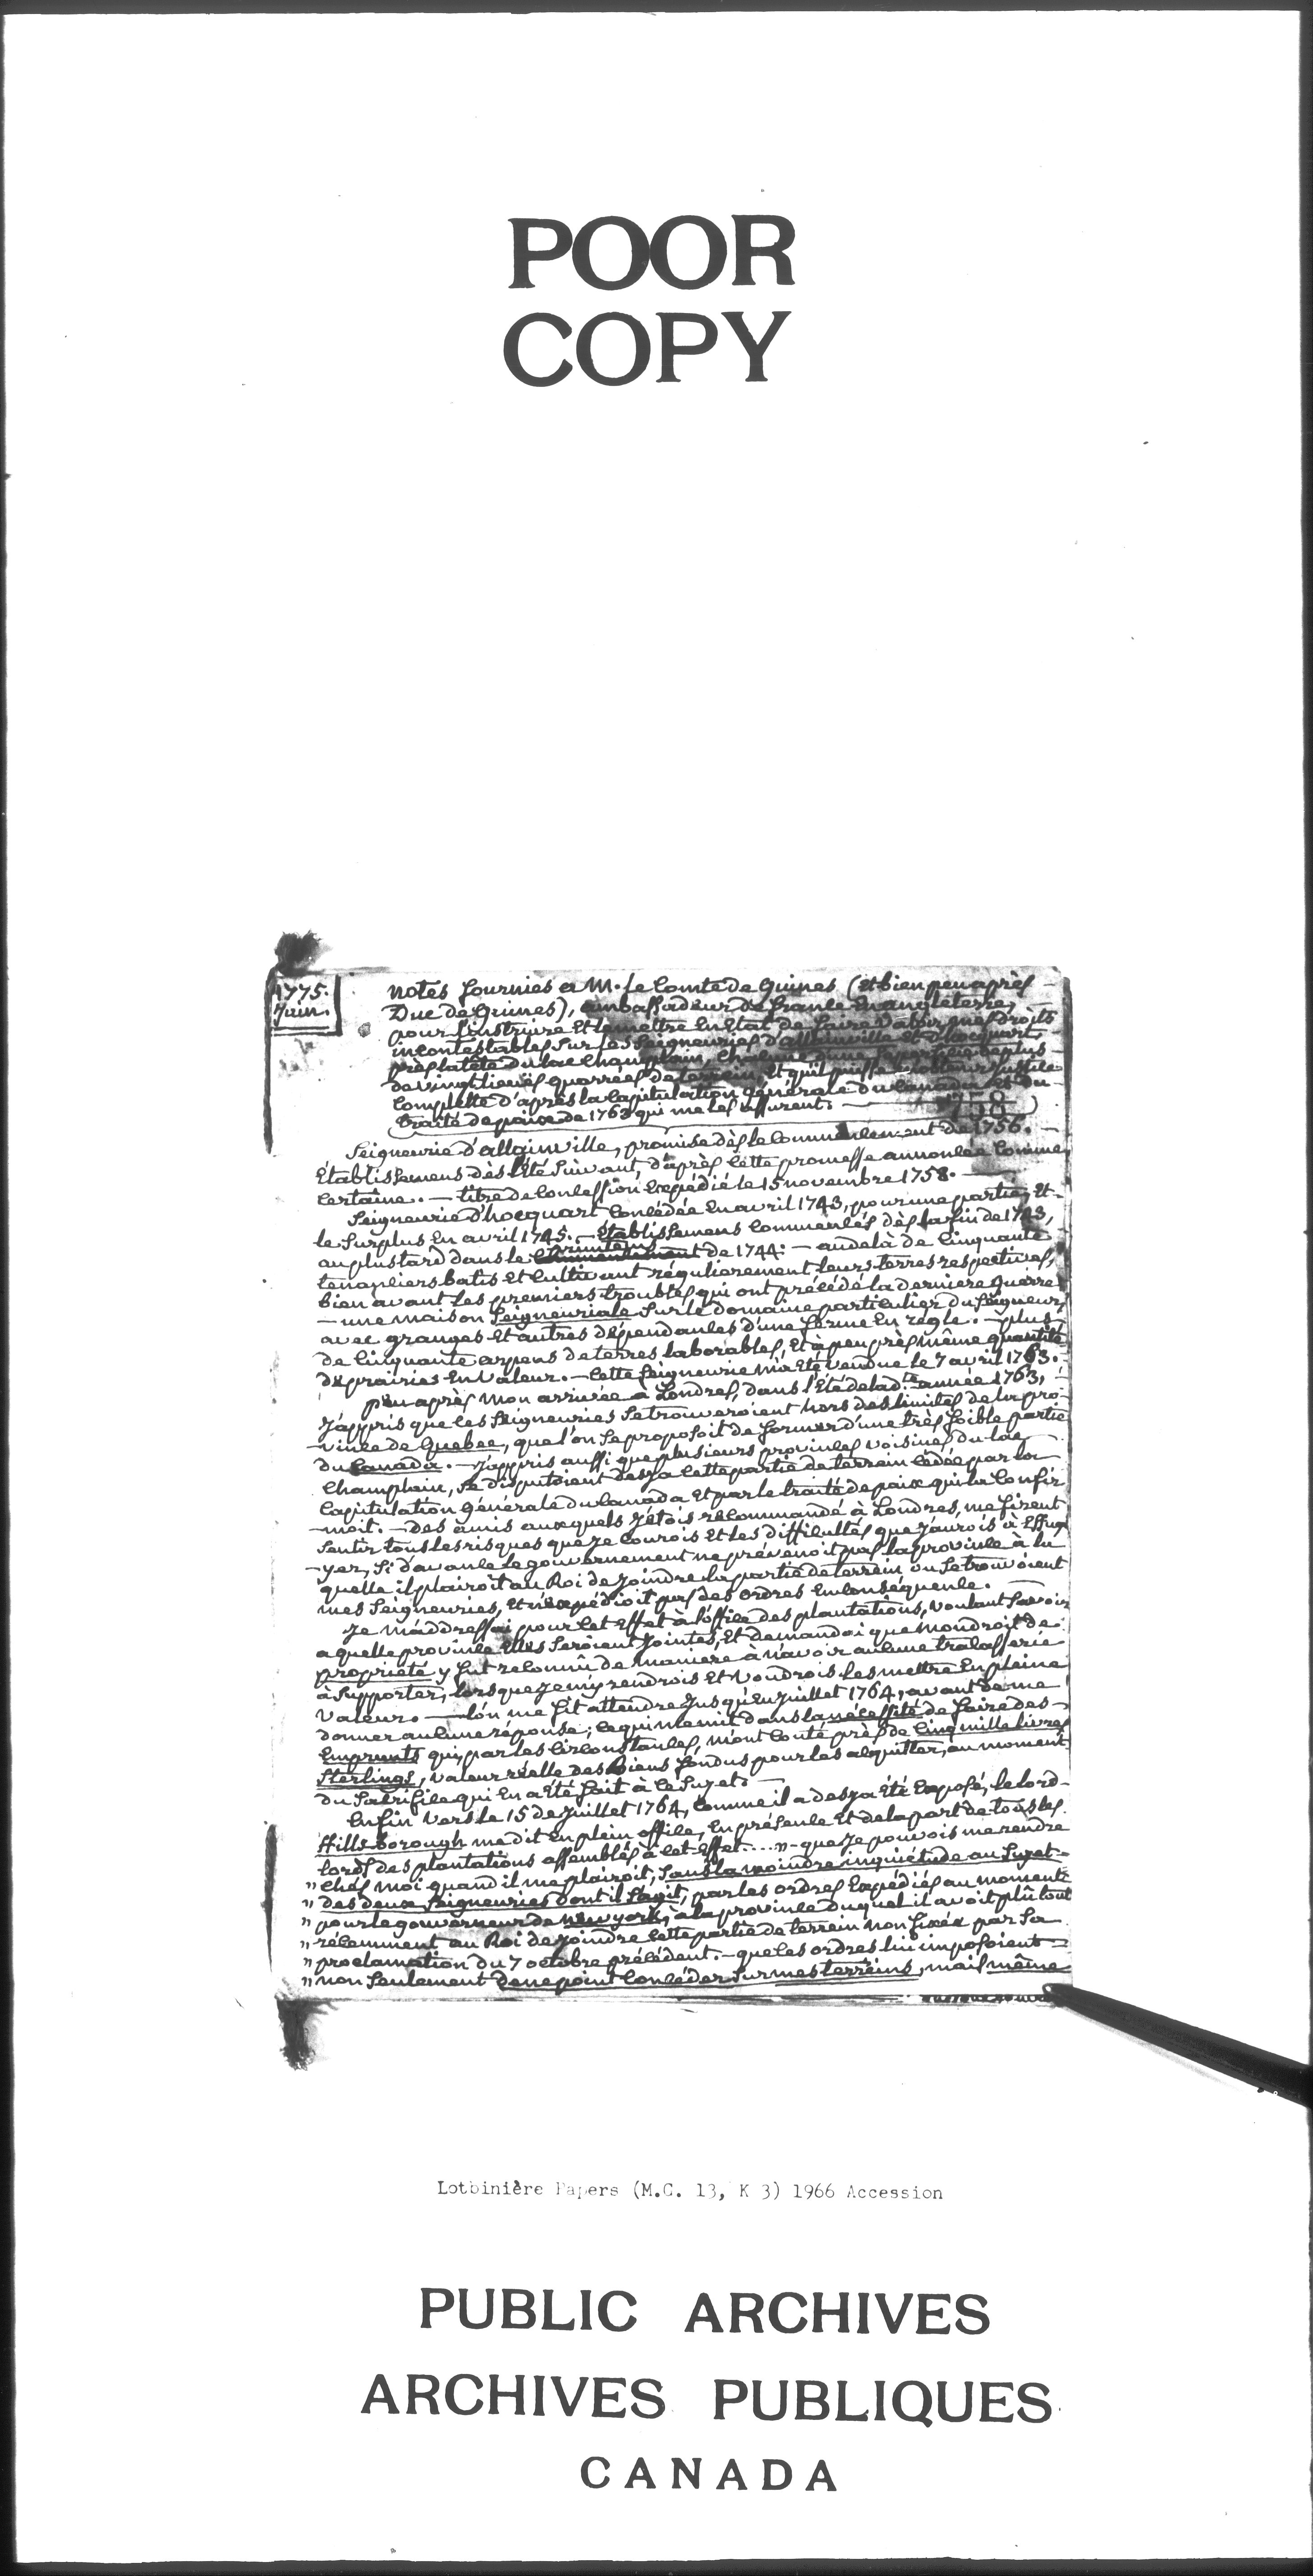 POOR
COPY
1775.
Juin.
notes fournies a M. le Comte de Guines (Et bien peu après
Duc de Guines), ambassadeur de france En angleterre,
pour l'instruire Et le mettre En Etat de faire valoir mes droits
incontestables sur les Seigneuries d'allainville et d'hocquart
près la tête du lac Champlain, chacune d'une superficie de plus
de vingt lieues quarrées de terrein, Et qu'il puisse justice
Complette d'après la Capitulation générale du Canada et du
traité de paix de 1763 qui me les assurent. —
758
Seigneurie d'allainville, promise dès le Commencement de 1756. —
Etablissemens dès l'Eté suivant, d'après cette promesse annoncée Comme
Certaine. — titre de Concession Expédié le 15 novembre 1758. —
Seigneurie d'hocquart Concédée En avril 1743, pour une partie, Et
le surplus En avril 1745. — Etablissemens Commencés dès la fin de 1743,
au plus tard dans le printems de 1744: — au delà de Cinquante
tenanciers batis Et Cultivant régulierement leurs terres respectives,
bien avant les premiers troubles qui ont précédé la derniere Guerre
— une maison Seigneuriale sur le domaine particulier du Seigneur,
avec granges Et autres dépendances d'une ferme En règle. — plus
de Cinquante arpens de terres laborables, Et à peu près même quantité
de prairies En Valeur. — Cette Seigneurie m'a Eté vendue le 7 avril 1763. —
peu après mon arrivée à Londres, dans l'Eté de lad.te année 1763,
J'appris que les Seigneuries se trouveroient hors des limites de la pro-
-vince de Quebec, que l'on se proposoit de former d'une très foible partie
du Canada. — J'appris aussi que plusieurs provinces voisines du lac
Champlain, se disputoient desja Cette partie de terrein Cédée par la
Capitulation générale du Canada Et par le traité de paix qui la Confir
-moit. — Des amis auxquels J'étois recommandé à Londres, me firent
sentir tous les risques que Je Courois Et les difficultés que J'aurois à Essuy
-yer, si d'avance le gouvernement ne prévenoit pas la province à la
quelle il plairoit au Roi de Joindre la partie de terrein ou se trouvoient
mes Seigneuries, Et n'Expédioit pas des ordres En Conséquence. —
Je m'addressai pour Cet Effet à l'office des plantations, voulant savoir
a quelle province Elles seroient Jointes, Et demandai que mon droit de
propriété y fut reconnu de maniere à n'avoir aucune tracasserie
à supporter, lorsque Je m'y rendrois Et Voudrois les mettre En pleine
Valeur. — l'on me fit attendre Jusqu'En Juillet 1764, avant de me
donner aucune réponse; Ce qui me mit dans la nécessité de faire des
Emprunts qui, par les Circonstances, m'ont Couté près de Cinq mille livres
Sterlings, Valeur réelle des Biens fondus pour les acquitter, au moment
du Sacrifice qui En a Eté fait à Ce Sujet. —
Enfin vers le 15 de Juillet 1764, Comme il a desja Eté Exposé, le lord
Hillsborough me dit En plein office, En présence Et de la part de tous les
lords des plantations assemblés à Cet Effet ....,, - que Je pouvois me rendre
,, Chés moi quand il me plairoit, sans la moindre inquiétude au Sujet
,, des deux Seigneuries dont il s'agit, par les ordres Expédiés au moment
,, pour le gouverneur de New york, à la province duquel il avoit plû tout
,, récemment au Roi de Joindre Cette partie de terrein non fixée par sa
,, proclamation du 7 octobre précédent. — que les ordres lui imposoient
,, non seulement de ne point Concéder sur mes terreins, mais même
Lotbinière Papers (M.G. 13, K 3) 1966 Accession
PUBLIC ARCHIVES
ARCHIVES PUBLIQUES
CANADA